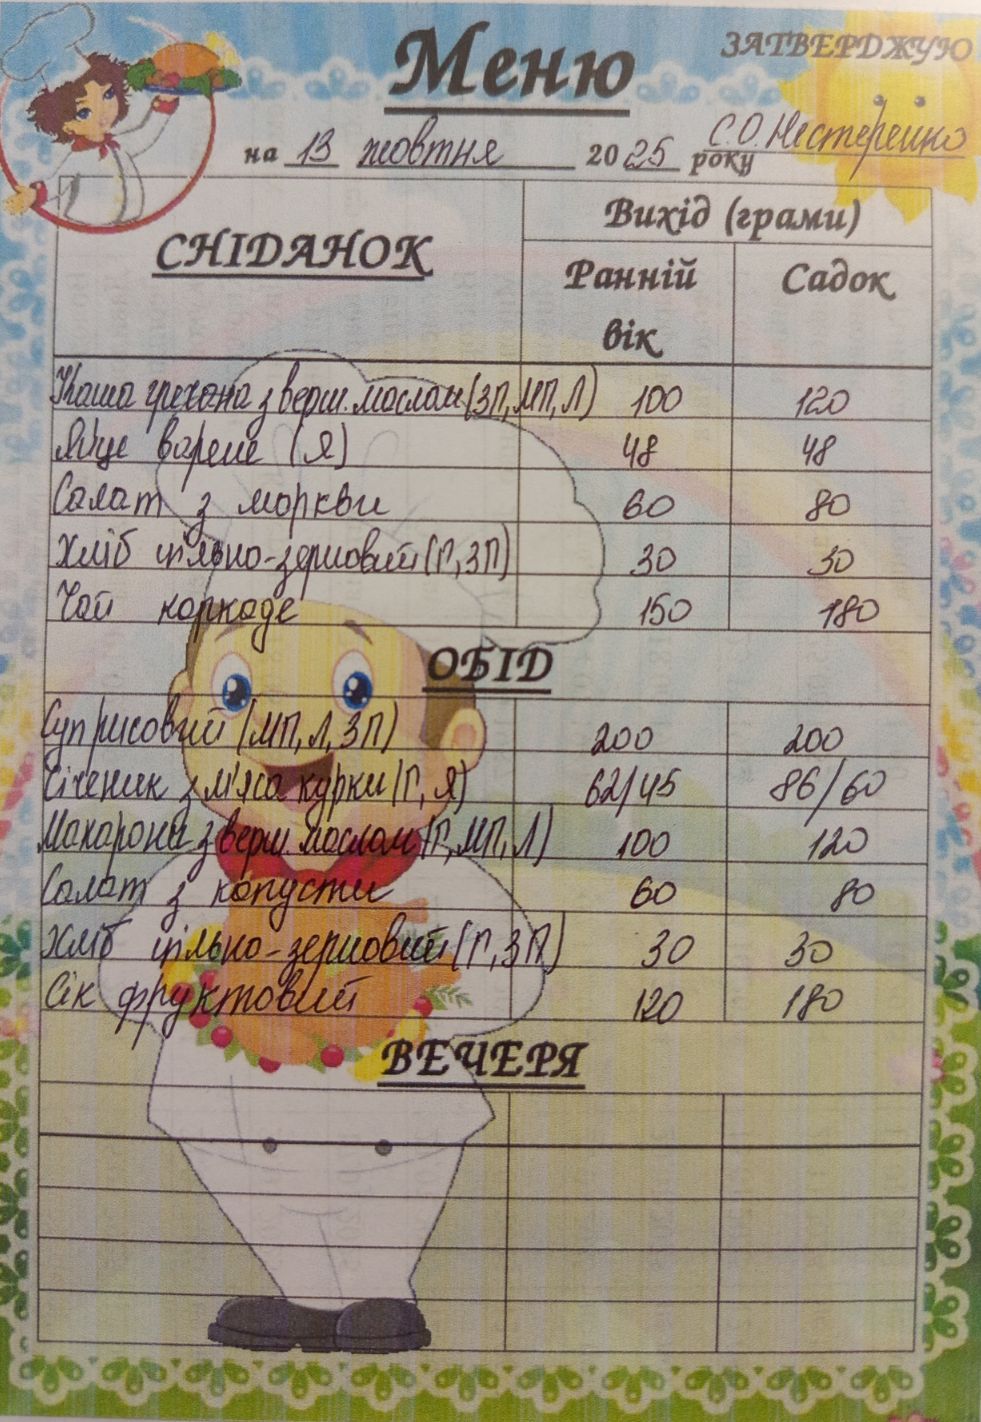 Меню
ЗАТВЕРДЖУЮ
С.О. Нестеренко
на 13 жовтня 2025 року
СНІДАНОК
Вихід (грами)
Ранній вік
Садок
Каша гречана з верш. маслом (ЗП, МП, Л) 100 120
Яйце варене (Я) 48 48
Салат з моркви 60 80
Хліб цільно-зерновий (Г, ЗП) 30 30
Чай каркаде 150 180
ОБІД
Суп рисовий (МП, Л, ЗП) 200 200
Січеник з м'яса курки (Г, Я) 62/45 86/60
Макарони з верш. маслом (Г, МП, Л) 100 120
Салат з капусти 60 80
Хліб цільно-зерновий (Г, ЗП) 30 30
Сік фруктовий 120 180
ВЕЧЕРЯ